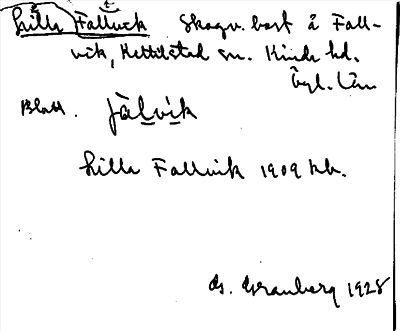 Lilla Fallvik Skogv. bost å Fall-
vik, Kettilstad sn. Kinda hd.
Ögl. Län
Blatt. jälvik
Lilla Fallvik 1909 kb.
G. Granberg 1928